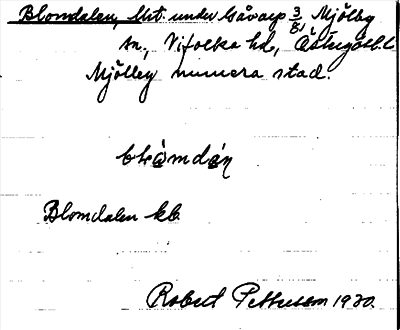 Blomdalen, lht. under Gåvarp 3/81 Mjölby
sn., Vifolka hd, Östergötl. l.
Mjölby numera stad.
Blomdalen kb
Robert Pettersson 1920.